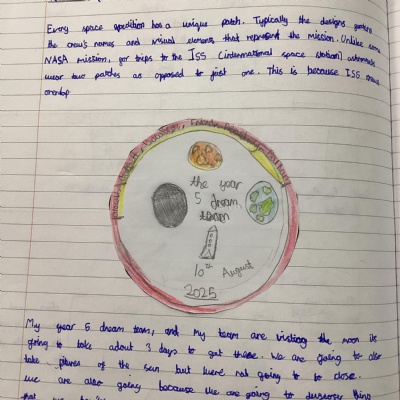 Every space expedition has a unique patch. Typically the designs
the crew's names and visual elements that represent the mission. Unlike some
NASA mission, for trips to the ISS (international space station) astronauts
wear two patches as opposed to just one. This is because ISS crews
overlap
the year
5 dream
team
10th August
2025
My year 5 dream team, and my team are visiting the moon its
going to take about 3 days to get there. We are going to also
take pitures of the sun but were not going to be close.
we are also going because we are going to discover thing
that